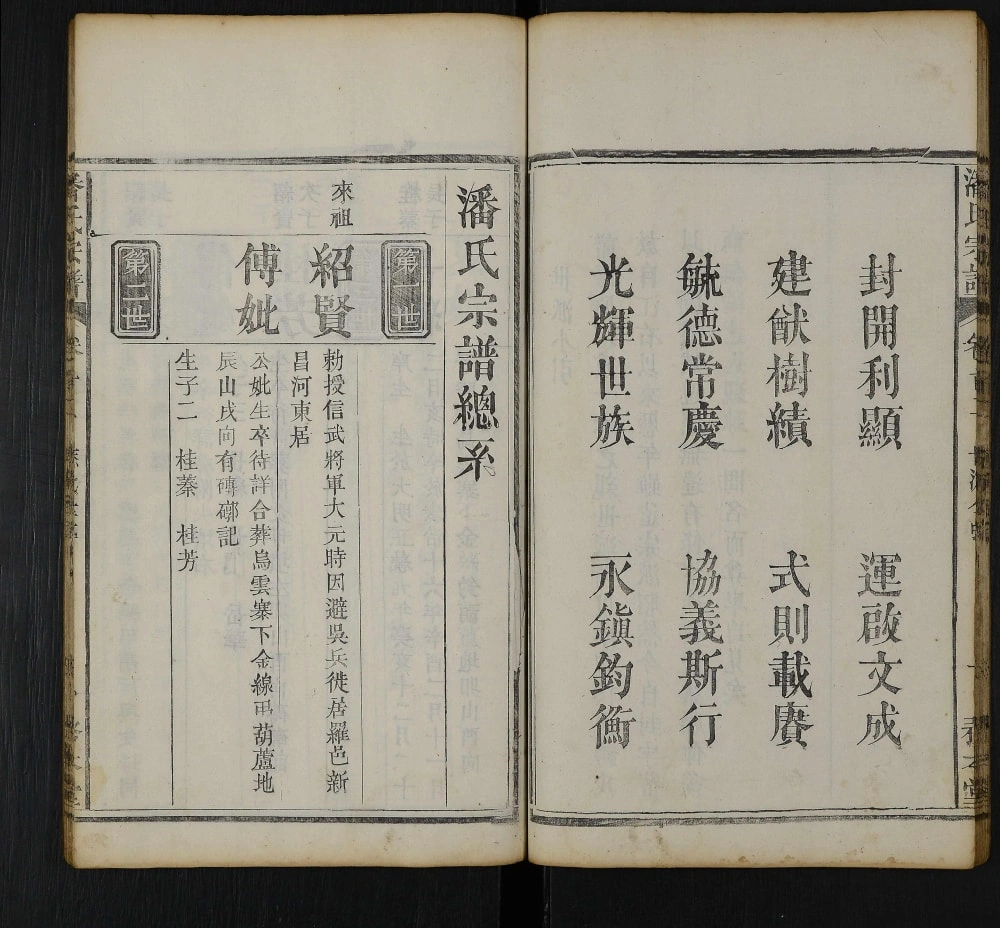 潘氏宗譜
封開利顯 運啟文成
建猷樹績 式則載賡
毓德常慶 協義斯行
光輝世族 永鎮鈞衡
潘氏宗譜總系
第一世
來祖
紹賢
勅授信武將軍大元時因避吳兵徙居羅邑新
昌河東居
傅妣
公妣生卒待詳合葬烏雲寨下金線弔葫蘆地
辰山戌向有磚𨞪記
生子二 桂蓁 桂芳
第二世
潘氏宗譜